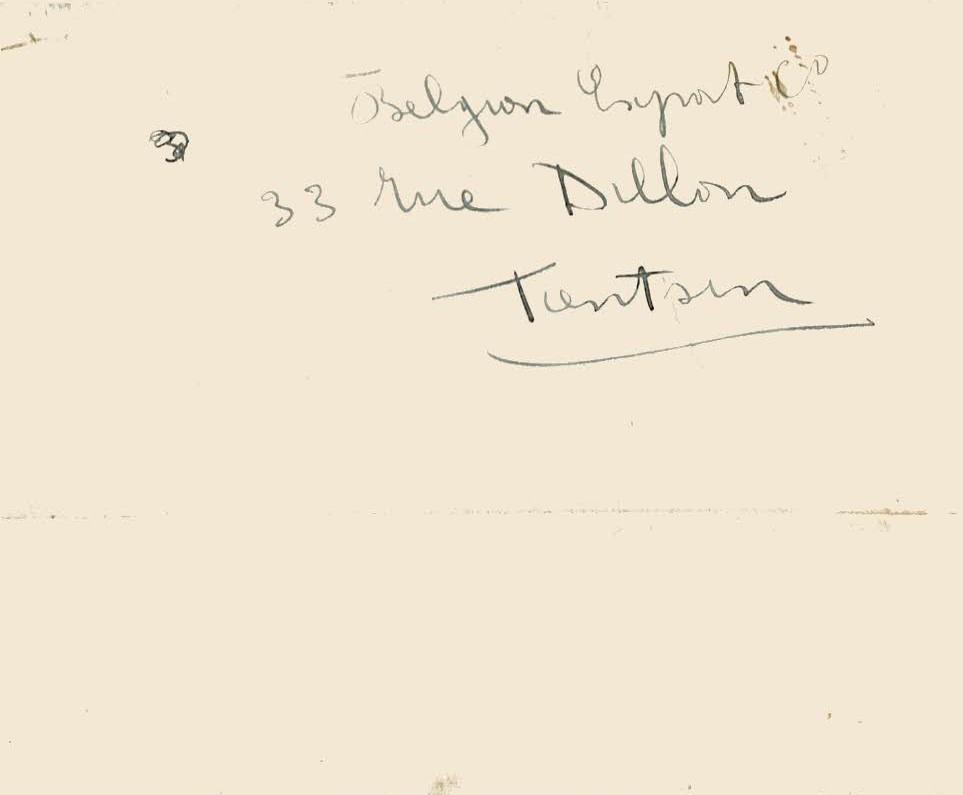 Belgian Export Co
33 rue Dillon
Tientsin